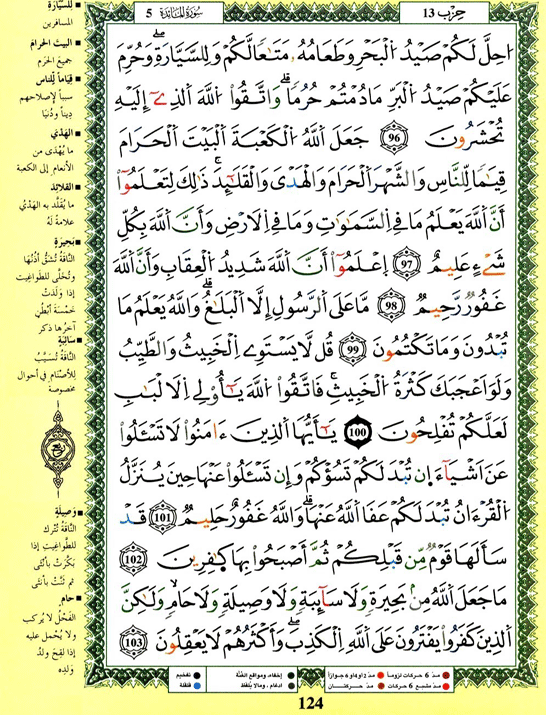 حِزْب 13
سُورَةُ المَائِدَة 5
اُحِلَّ لَكُمْ صَيْدُ اُلْبَحْرِ وَطَعَامُهُۥ مَتَٰعاً لَّكُمْ وَلِلسَّيَّارَةِۖ وَحُرِّمَ
عَلَيْكُمْ صَيْدُ اُلْبَرِّ مَا دُمْتُمْ حُرُماًۖ وَاتَّقُوا۟ اُللَّهَ اَلذِےٓ إِلَيْهِ
تُحْشَرُونَ 96 جَعَلَ اَللَّهُ اُلْكَعْبَةَ اَلْبَيْتَ اَلْحَرَامَ
قِيَٰماً لِّلنَّاسِ وَالشَّهْرَ اَلْحَرَامَ وَالْهَدْىَ وَالْقَلَٰٓئِدَۖ ذَٰلِكَ لِتَعْلَمُوٓا۟
أَنَّ اَللَّهَ يَعْلَمُ مَا فِے اِلسَّمَٰوَٰتِ وَمَا فِے اِلَارْضِ وَأَنَّ اَللَّهَ بِكُلِّ
شَےْءٍ عَلِيمٌ 97 اِعْلَمُوٓا۟ أَنَّ اَللَّهَ شَدِيدُ اُلْعِقَابِ وَأَنَّ اَللَّهَ
غَفُورٌ رَّحِيمٌ 98 مَّا عَلَى اَلرَّسُولِ إِلَّا اَلْبَلَٰغُۖ وَاللَّهُ يَعْلَمُ مَا
تُبْدُونَ وَمَا تَكْتُمُونَ 99 قُل لَّا يَسْتَوِے اِلْخَبِيثُ وَالطَّيِّبُ
وَلَوَ اَعْجَبَكَ كَثْرَةُ اُلْخَبِيثِۖ فَاتَّقُوا۟ اُللَّهَ يَٰٓأُو۟لِے اِلَالْبَٰبِ
لَعَلَّكُمْ تُفْلِحُونَ 100 يَٰٓأَيُّهَا اَلذِينَ ءَامَنُوا۟ لَا تَسْـَٔلُوا۟
عَنَ اَشْيَآءَ ان تُبْدَ لَكُمْ تَسُؤْكُمْ وَإِن تَسْـَٔلُوا۟ عَنْهَا حِينَ يُنَزَّلُ
اُلْقُرْءَانُ تُبْدَ لَكُمْ عَفَا اَللَّهُ عَنْهَاۖ وَاللَّهُ غَفُورٌ حَلِيمٌ 101 قَدْ
سَأَلَهَا قَوْمٌ مِّن قَبْلِكُمْ ثُمَّ أَصْبَحُوا۟ بِهَا كَٰفِرِينَ 102
مَا جَعَلَ اَللَّهُ مِنۢ بَحِيرَةٍ وَلَا سَآئِبَةٍ وَلَا وَصِيلَةٍ وَلَا حَامٍۖ وَلَٰكِنَّ
اَلذِينَ كَفَرُوا۟ يَفْتَرُونَ عَلَى اَللَّهِ اِلْكَذِبَۖ وَأَكْثَرُهُمْ لَا يَعْقِلُونَ 103
لِلسَّيَّارَةِ
المسافرين
البيتَ الحرامَ
جميعَ الحَرَم
قِيَاماً للناس
سبباً لإصلاحهم
دِيناً ودُنيَا
الهَدْيَ
ما يُهْدَى من
الأنعام إلى الكعبة
القلائد
ما يُقَلَّد به الهَدْيُ
علامةً لَهُ
بَحِيرَةٍ
النّاقَةُ تُشَقُّ أُذُنُهَا
وتُخَلَّى للطّواغيت
إذا وَلَدَتْ
خمسةَ أبْطُن
آخرُها ذكر
سائبَةٍ
النّاقةُ تُسَيَّبُ
للأصنام في أحوال
مخصوصة
وَصِيلَةٍ
النّاقةُ تُتْرك
للطّواغيت إذا
بَكَّرَتْ بأنثَى
ثم ثَنَّتْ بأنثَى
حامٍ
الفَحْلُ لا يُركب
ولا يُحْمل عليه
إذا لَقِحَ ولدُ
ولده
مدّ 6 حركات لزوماً
مدّ 2 أو 4 أو 6 جوازاً
إخفاء، ومواقع الغُنَّة
تفخيم
مدّ مشبع 6 حركات
مدّ حركتان
ادغام، وما لا يُلفَظ
قلقلة
124